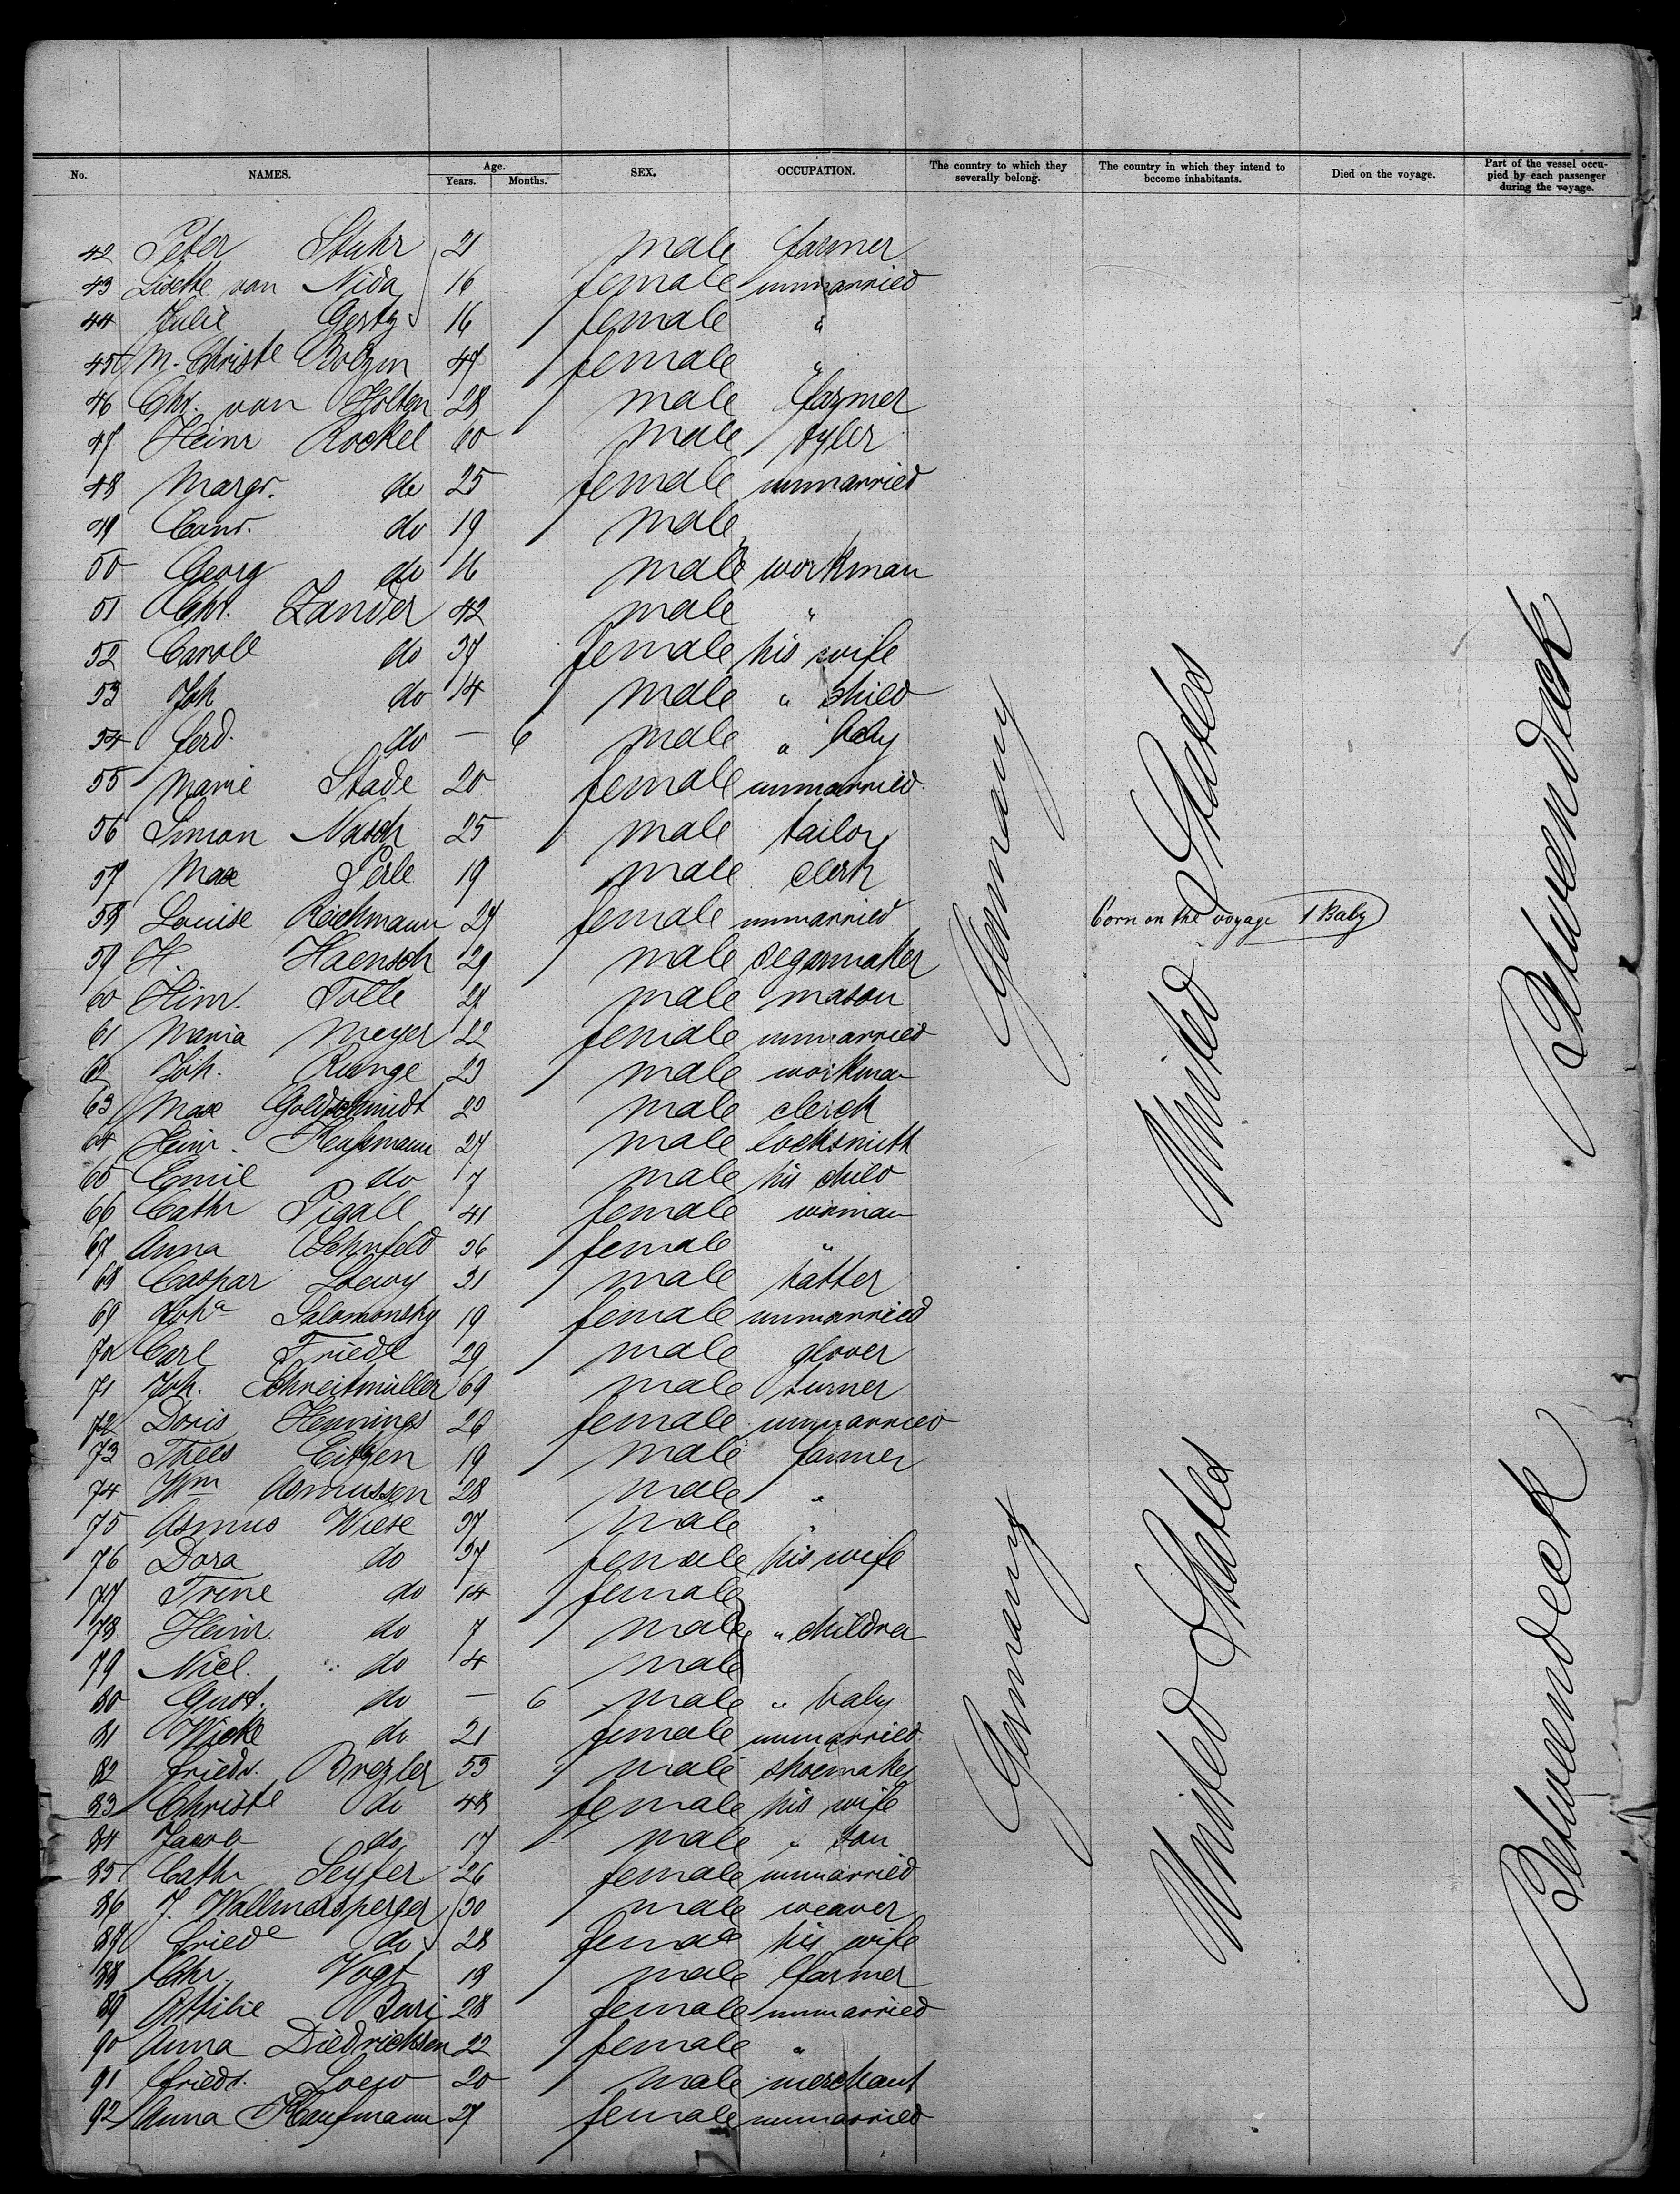 No. NAMES. Age. Years. Months. SEX. OCCUPATION. The country to which they severally belong. The country in which they intend to become inhabitants. Died on the voyage. Part of the vessel occupied by each passenger during the voyage.
42 Peter Stuhr 21 male farmer
43 Lisette van Nida 16 female unmarried
44 Julie Gertz 16 female "
45 M. Christe 47 female "
46 Chr. van Holten 28 male farmer
47 Heinr Rockel 60 male tyler
48 Margr. do 25 female unmarried
49 Conr. do 19 male "
50 Georg do 16 male workman
51 Chr. Zander 42 male "
52 Caroll do 37 female his wife
53 Joh do 14 male " child
54 Ferd. do — 6 male " baby
55 Marie Stade 20 female unmarried
56 Simon Nasch 25 male tailor
57 Max Perle 19 male clerk
58 Louise Reichmann 27 female unmarried
born on the voyage 1 Baby
59 H. Haensch 29 male segarmaker
60 Hinr. Tolle 27 male mason
61 Maria Meyer 22 female unmarried
62 Joh. Runge 23 male workman
63 Max Goldschmidt 23 male clerck
64 Heinr. 27 male locksmith
65 Emil do 7 male his child
66 Cathr Pigall 41 female woman
67 Anna 36 female "
68 Caspar Loewy 31 male hatter
69 Joha Salomonsky 19 female unmarried
70 Carl Friede 29 male glover
71 Joh. Schreitmüller 69 male turner
72 Doris Hennings 26 female unmarried
73 Thees Eitzen 19 male farmer
74 Wm Asmussen 28 male "
75 Asmus Wiese 37 male "
76 Dora do 37 female his wife
77 Trine do 14 female
78 Heinr. do 7 male " children
79 Nicl. do 4 male
80 Gust. do — 6 male " baby
81 Wicke do 21 female unmarried
82 Friedr. Brezler 53 male shoemaker
83 Christe do 48 female his wife
84 Jacob do 17 male " son
85 Cathr Seyfer 26 female unmarried
86 J. Wallmersperger 30 male weaver
87 Friede do 28 female his wife
88 Chr. Vogt 18 male farmer
89 Ottilie 28 female unmarried
90 Anna Diedrichsen 22 female "
91 Friedr. Loew 20 male merchant
92 Anna Kaufmann 27 female unmarried
Germany
United States
Betweendeck
Germany
United States
Betweendeck